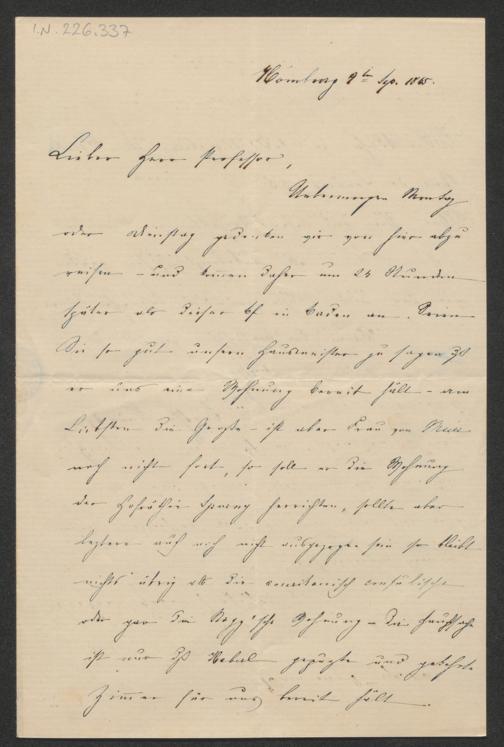 I.N. 226.337
Homburg 9ten Sep. 1865.
Lieber Herr Professor,
Uebermorgen Montag
oder Dienstag gedenken wir von hier abzu
reisen – und kommen daher um 24 Stunden
später als dieser Bf in Baden an. Seien
Sie so gut unsern Hausmeister zu sagen dß
er uns eine Wohnung bereit hält – am
Liebsten die Große – ist aber Frau von
noch nicht fort, so soll er die Wohnung
der Hofräthin herrichten, sollte aber
letztere auch noch nicht ausgezogen sein so bleibt
nichts übrig als die
oder gar die Wohnung – die Hauptsache
ist nur dß geputzte und gekehrte
Zimmer für uns bereit hält.